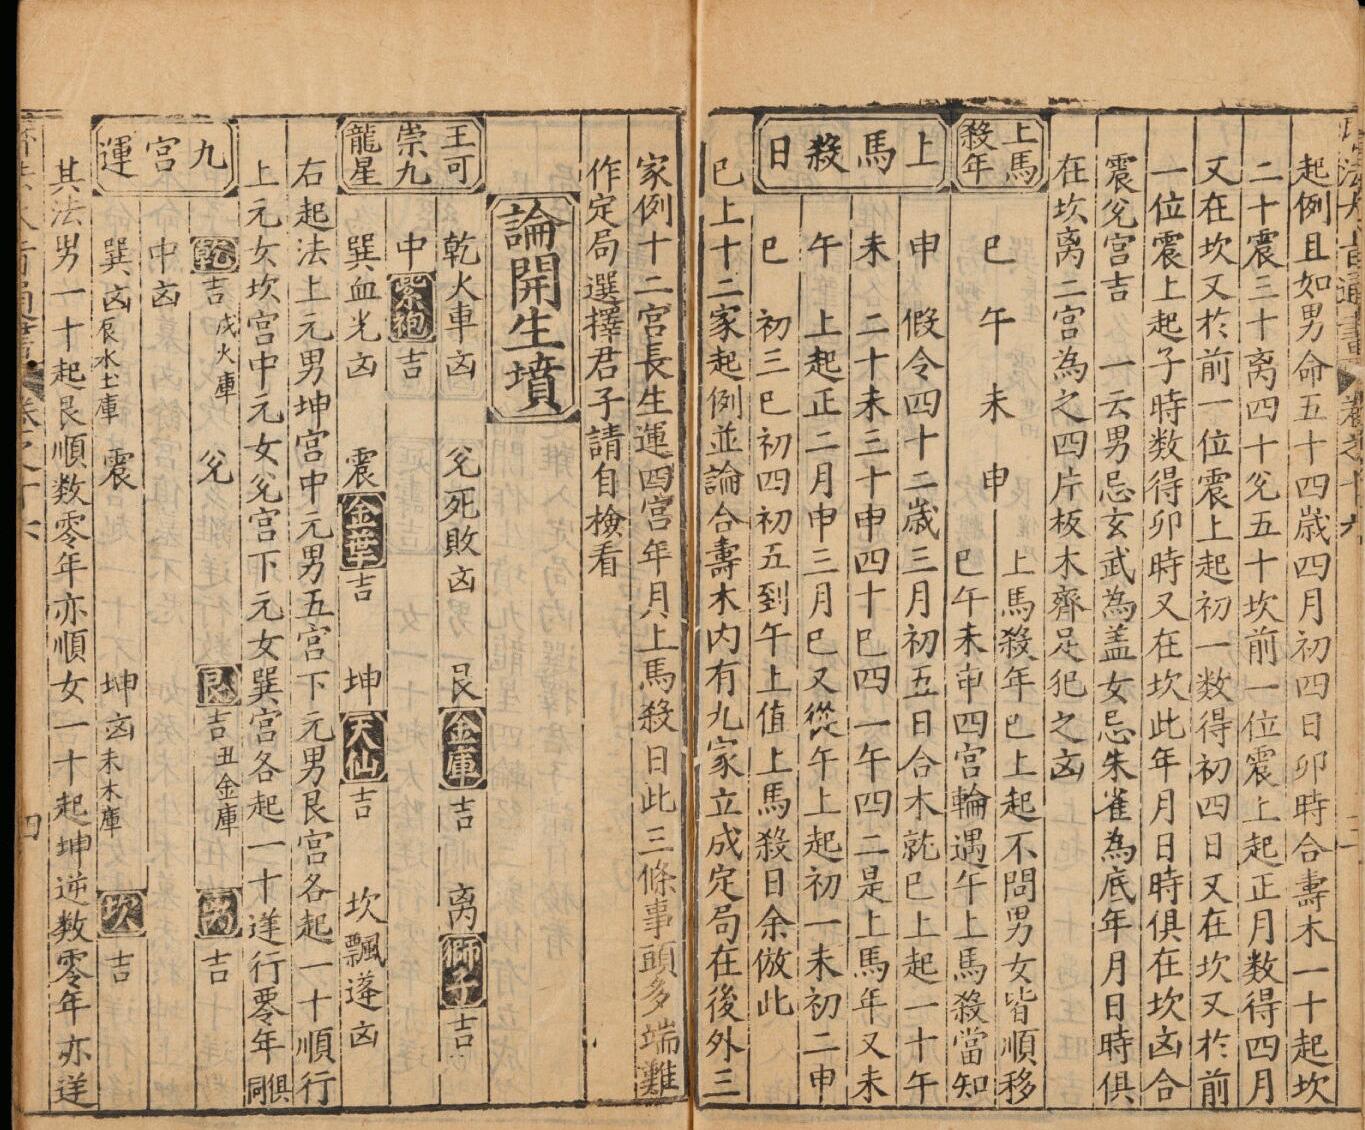 起例且如男命五十四歲四月初四日卯時合壽木一十起坎
二十震三十离四十兊五十坎前一位震上起正月数得四月
又在坎又於前一位震上起初一数得初四日又在坎又於前
一位震上起子時数得卯時又在坎此年月日時俱在坎凶合
震兊宮吉 一云男忌玄武為盖女忌朱雀為底年月日時俱
在坎离二宮為之四片板木齊足犯之凶
上馬殺年
巳 午 未 申 上馬殺年巳上起不問男女皆順移
巳午未申四宮輪遇午上馬殺當知
上馬殺日
申 假令四十二歲三月初五日合木就巳上起一十午
未 二十未三十申四十巳四一午四二是上馬年又未
午 上起正二月申三月巳又從午上起初一未初二申
巳 初三巳初四初五到午上值上馬殺日余倣此
巳上十二家起例並論合壽木内有九家立成定局在後外三
家例十二宮長生運四宮年月上馬殺日此三條事頭多端難
作定局選擇君子請自檢看
論開生墳
王可崇九龍星
乾火車凶 兊死敗凶 艮金庫吉 离獅子吉
中紫袍吉
巽血光凶 震金葉吉 坤天仙吉 坎飄蓬凶
右起法上元男坤宮中元男五宮下元男艮宮各起一十順行
上元女坎宮中元女兊宮下元女巽宮各起一十逆行零年俱同
九宮運
乾吉戌火庫 兊 艮吉丑金庫 离吉
中凶
巽凶辰水土庫 震 坤凶未木庫 坎吉
其法男一十起艮順数零年亦順女一十起坤逆数零年亦逆
四